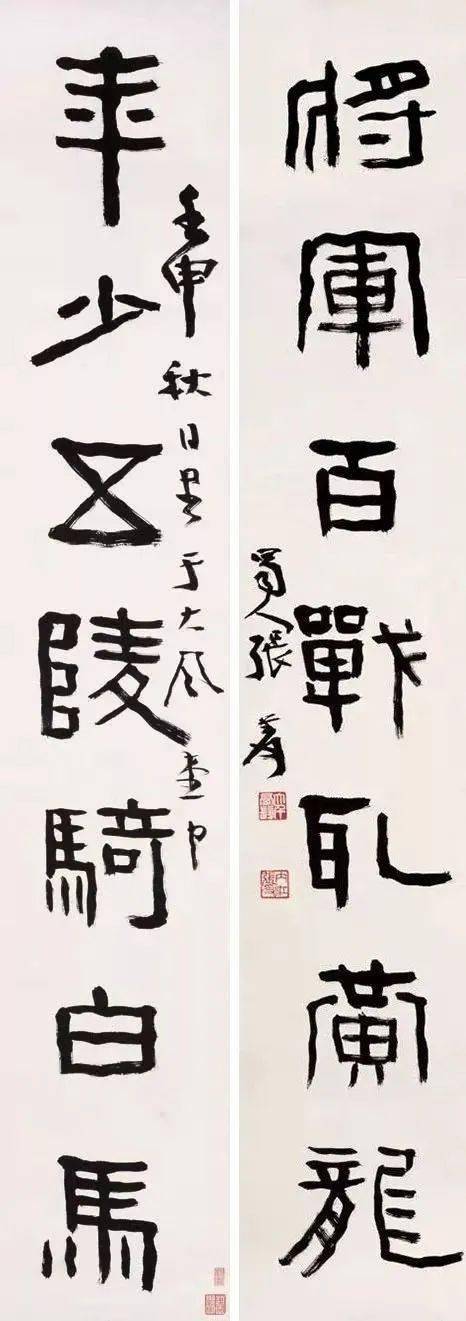 將軍百戰取黃龍
年少五陵騎白馬
壬申秋日書于大風堂中
蜀人張爰